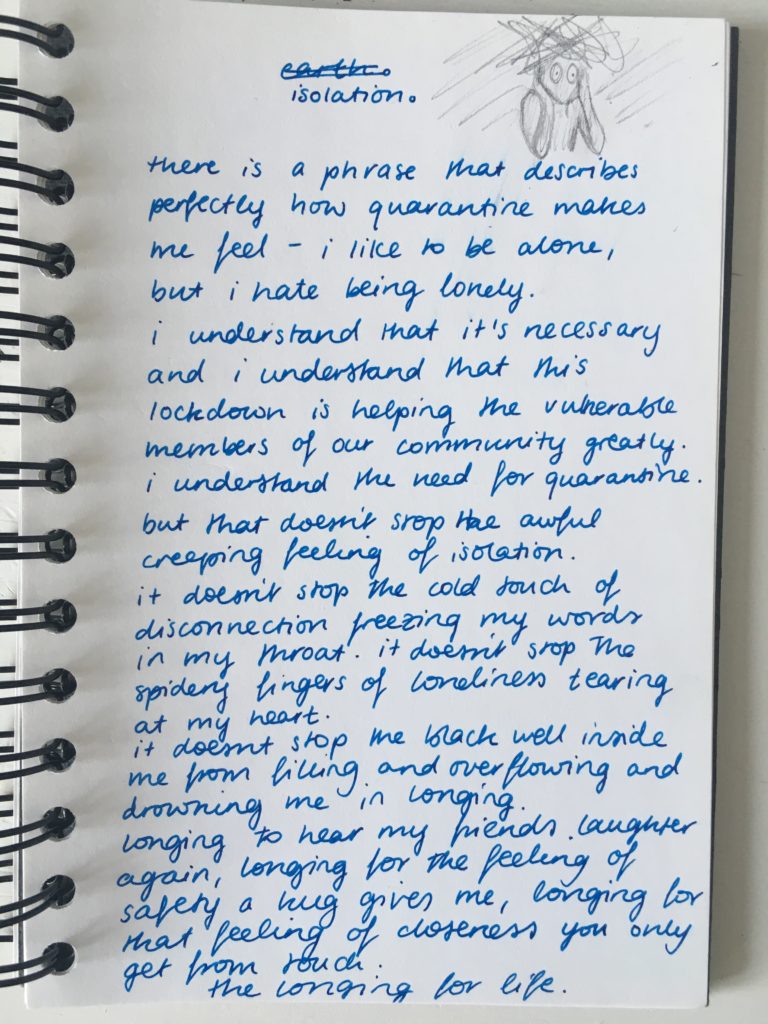 earth.
isolation.
there is a phrase that describes
perfectly how quarantine makes
me feel - i like to be alone,
but i hate being lonely.
i understand that it's necessary
and i understand that this
lockdown is helping the vulnerable
members of our community greatly.
i understand the need for quarantine.
but that doesn't stop the awful
creeping feeling of isolation.
it doesn't stop the cold touch of
disconnection freezing my words
in my throat. it doesn't stop the
spidery fingers of loneliness tearing
at my heart.
it doesnt stop the black well inside
me from filling and overflowing and
drowning me in longing.
longing to hear my friends laughter
again, longing for the feeling of
safety a hug gives me, longing for
that feeling of closeness you only
get from touch.
the longing for life.